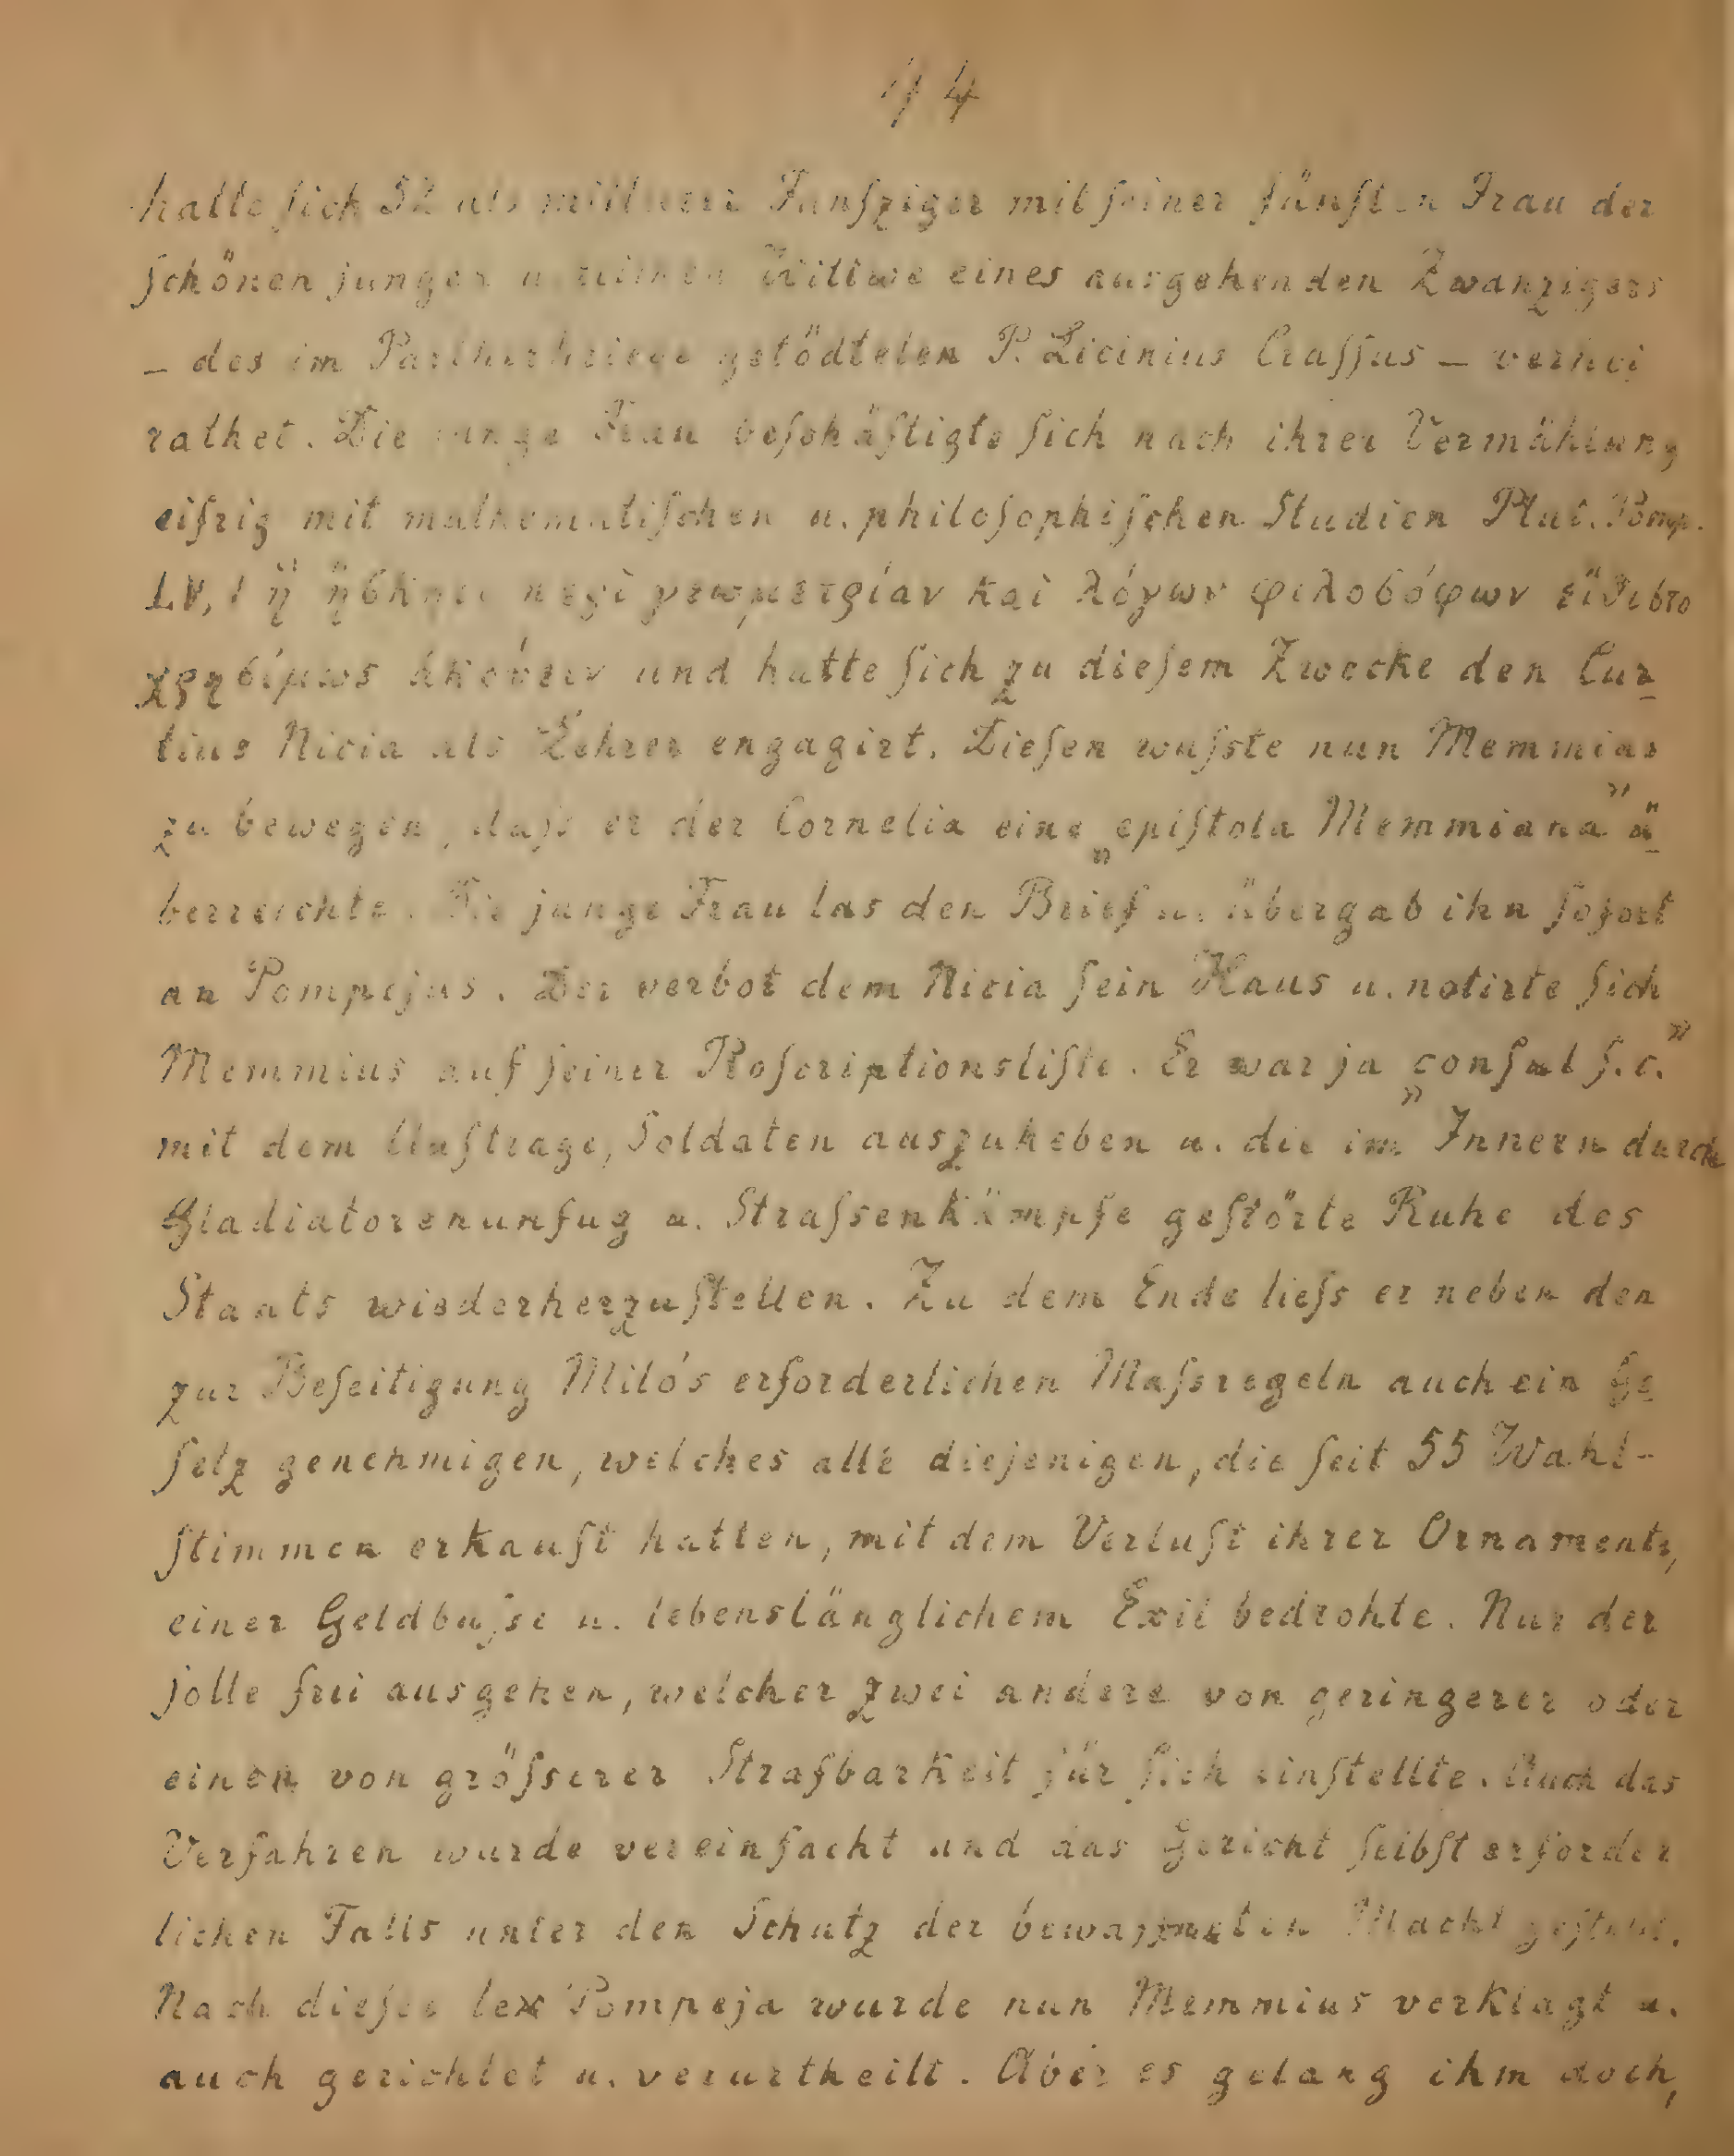 74
hatte ſich 52 als mittlerer Funfziger mit ſeiner fünften Frau der
ſchönen jungen u. Wittwe eines ausgehenden Zwanzigers
– des im Partherkriege getödteten P. Licinius Craſſus – verhei
rathet. Die junge Frau beſchäftigte ſich nach ihrer Vermählung
eifrig mit mathematiſchen u. philoſophiſchen Studien Plut. Pomp.
LV, 1 ἢ ἤσκητο περὶ γεωμετρίαν καὶ λόγων φιλοσόφων εἴθιστο
χρησίμως ἀκούειν und hatte ſich zu dieſem Zwecke den Cur
tius Nicia als Lehrer engagirt. Dieſen wuſste nun Memmius
zu bewegen, daſs er der Cornelia eine „epiſtola Memmiana” ü
berreichte. Die junge Frau las den Brief u. übergab ihn ſofort
an Pompejus. Der verbot dem Nicia ſein Haus u. notirte ſich
Memmius auf ſeiner Roſcriptionsliſte. Er war ja „conſul ſ.c.”
mit dem Auftrage, Soldaten auszuheben u. die im Innern durch
Gladiatorenunfug u. Straſsenkämpfe geſtörte Ruhe des
Staats wiederherzuſtellen. Zu dem Ende lieſs er neben den
zur Beſeitigung Milo's erforderlichen Maſsregeln auch ein Ge
ſetz genehmigen, welches alle diejenigen, die ſeit 55 Wahl-
ſtimmen erkauft hatten, mit dem Verluſt ihrer Ornamente,
einer Geldbuſse u. lebenslänglichem Exil bedrohte. Nur der
ſolle frei ausgehen, welcher zwei andere von geringerer oder
einen von gröſserer Strafbarkeit für ſich einſtellte. Auch das
Verfahren wurde vereinfacht und das Gericht ſelbſt erforder
lichen Falls unter den Schutz der bewaffneten Macht geſtellt.
Nach dieſer lex Pompeja wurde nun Memmius verklagt u.
auch gerichtet u. verurtheilt. Aber es gelang ihm doch,